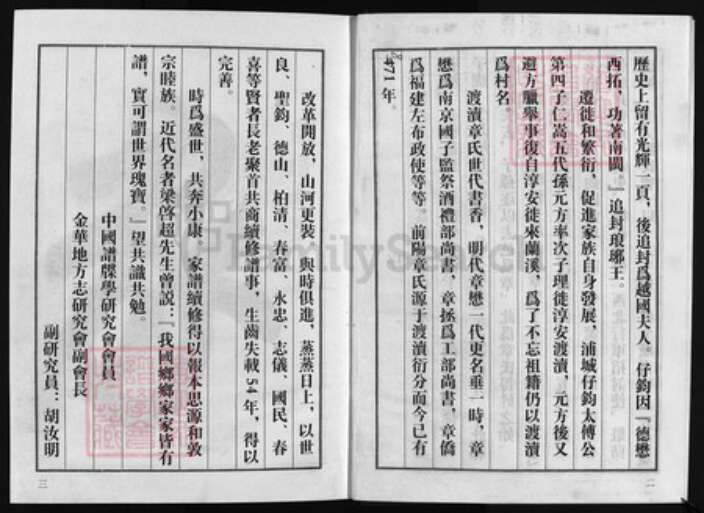 歷史上留有光輝一頁，後追封爲越國夫人。仔鈞因『德懋
西拓，功著南閩。』追封琅琊王。
遷徙和繁衍，促進家族自身發展，浦城仔鈞太傅公
第四子仁嵩五代孫元方率次子理徙淳安渡瀆，元方後又
避方臘舉事復自淳安徙來蘭溪，爲了不忘祖籍仍以渡瀆
爲村名
渡瀆章氏世代書香，明代章懋一代更名垂一時，章
懋爲南京國子監祭酒禮部尚書，章拯爲工部尚書，章僑
爲福建左布政使等等，前陽章氏源于渡瀆衍分而今已有
471年。
改革開放，山河更裝，與時俱進，蒸蒸日上，以世
良、聖鈞、德山、柏清、春富、永忠、志儀、國民、春
喜等賢者長老聚首共商續修譜事，生齒失載54年，得以
完善。
時爲盛世，共奔小康，家譜續修得以報本思源和敦
宗睦族。近代名者梁啓超先生曾説：『我國鄉鄉家家皆有
譜，實可謂世界瑰寶。』望共識共勉。
中國譜牒學研究會會員
金華地方志研究會副會長
副研究員：胡汝明
二
三
FamilySearch